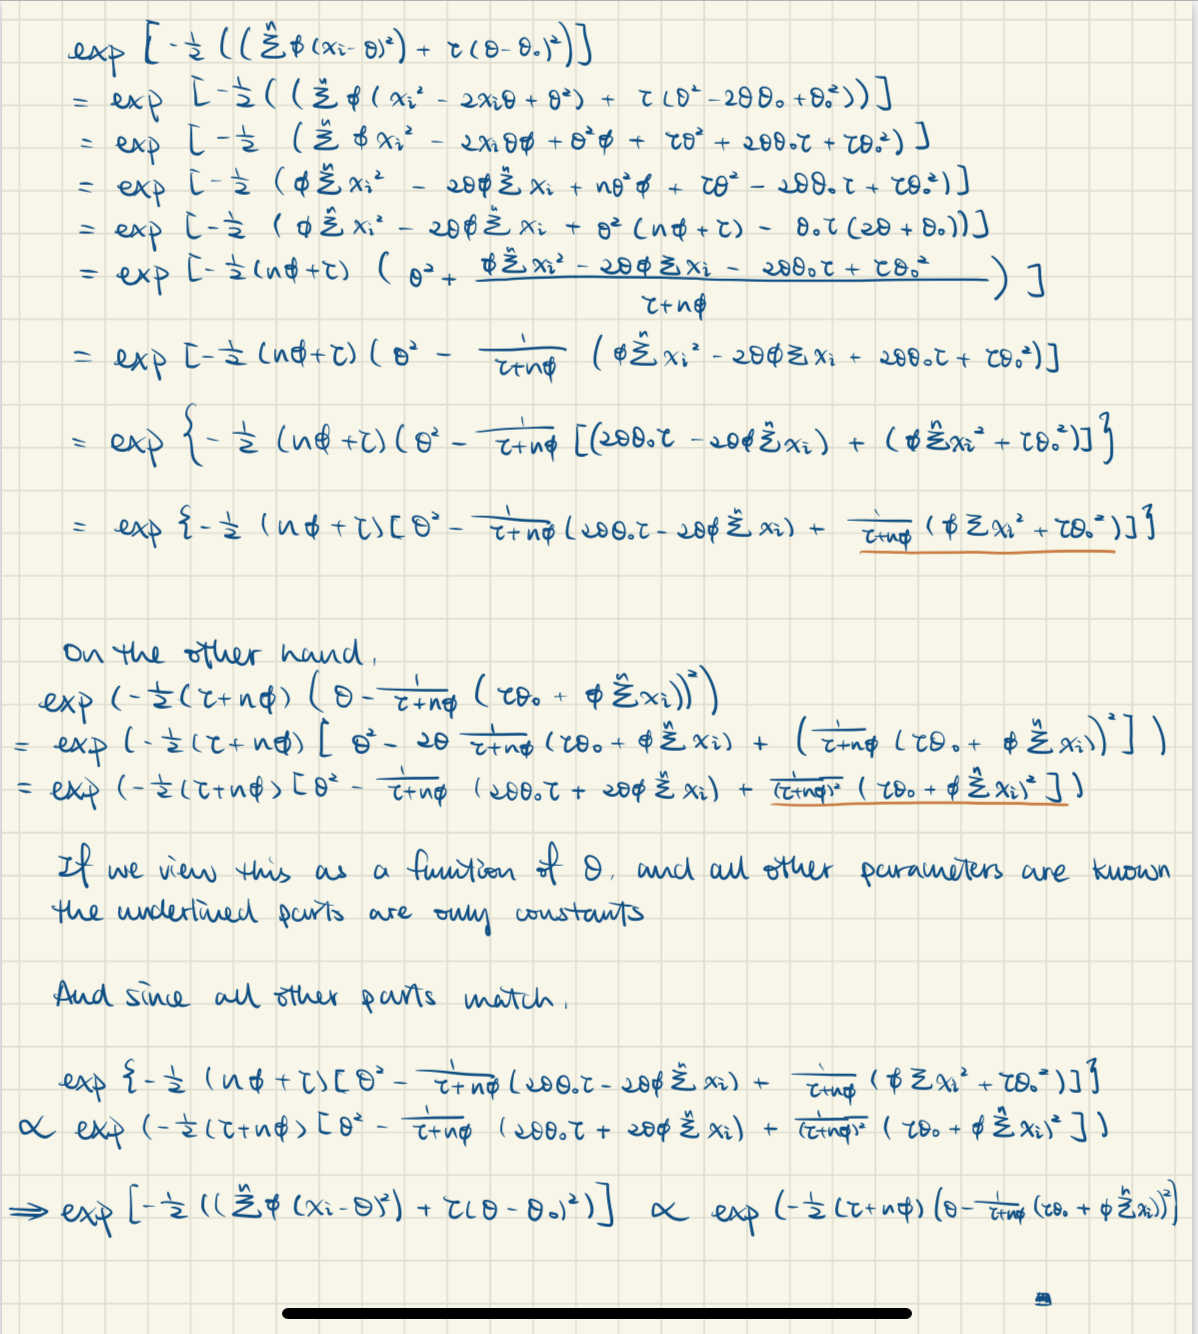 exp [-½ ((Σⁿ ϕ (xᵢ - θ)²) + τ (θ - θ₀)²)]
= exp [-½ ( (Σⁿ ϕ ( xᵢ² - 2xᵢθ + θ²) + τ (θ² - 2θθ₀ + θ₀²))]
= exp [-½ (Σⁿ ϕ xᵢ² - 2xᵢθϕ + θ²ϕ + τθ² + 2θθ₀τ + τθ₀²)]
= exp [-½ (ϕ Σⁿ xᵢ² - 2θϕ Σⁿ xᵢ + nθ²ϕ + τθ² - 2θθ₀τ + τθ₀²)]
= exp [-½ ( ϕ Σⁿ xᵢ² - 2θϕ Σⁿ xᵢ + θ² (nϕ + τ) - θ₀τ (2θ + θ₀))]
= exp [-½ (nϕ+τ) ( θ² + (ϕ Σⁿ xᵢ² - 2θϕ Σ xᵢ - 2θθ₀τ + τθ₀²)/(τ+nϕ) ) ]
= exp [-½ (nϕ+τ) ( θ² - 1/(τ+nϕ) (ϕ Σⁿ xᵢ² - 2θϕ Σ xᵢ + 2θθ₀τ + τθ₀²)]
= exp {-½ (nϕ+τ) (θ² - 1/(τ+nϕ) [(2θθ₀τ - 2θϕ Σⁿ xᵢ) + (ϕ Σⁿ xᵢ² + τθ₀²)]}
= exp {-½ (nϕ+τ) [θ² - 1/(τ+nϕ) (2θθ₀τ - 2θϕ Σⁿ xᵢ) + 1/(τ+nϕ) (ϕ Σ xᵢ² + τθ₀²)]}
On the other hand,
exp (-½ (τ+nϕ) (θ - 1/(τ+nϕ) (τθ₀ + ϕ Σⁿ xᵢ))²)
= exp (-½ (τ+nϕ) [ θ² - 2θ 1/(τ+nϕ) (τθ₀ + ϕ Σⁿ xᵢ) + (1/(τ+nϕ) (τθ₀ + ϕ Σⁿ xᵢ))² ] )
= exp (-½ (τ+nϕ) [θ² - 1/(τ+nϕ) (2θθ₀τ + 2θϕ Σⁿ xᵢ) + 1/(τ+nϕ)² (τθ₀ + ϕ Σⁿ xᵢ)² ])
If we view this as a function of θ, and all other parameters are known
the underlined parts are only constants
And since all other parts match,
exp {-½ (nϕ+τ) [θ² - 1/(τ+nϕ) (2θθ₀τ - 2θϕ Σⁿ xᵢ) + 1/(τ+nϕ) (ϕ Σ xᵢ² + τθ₀²)]}
∝ exp (-½ (τ+nϕ) [θ² - 1/(τ+nϕ) (2θθ₀τ + 2θϕ Σⁿ xᵢ) + 1/(τ+nϕ)² (τθ₀ + ϕ Σⁿ xᵢ)² ])
⇒ exp [-½ ((Σⁿ ϕ (xᵢ - θ)²) + τ(θ - θ₀)²)] ∝ exp (-½ (τ+nϕ) (θ - 1/(τ+nϕ) (τθ₀ + ϕ Σⁿ xᵢ))²)